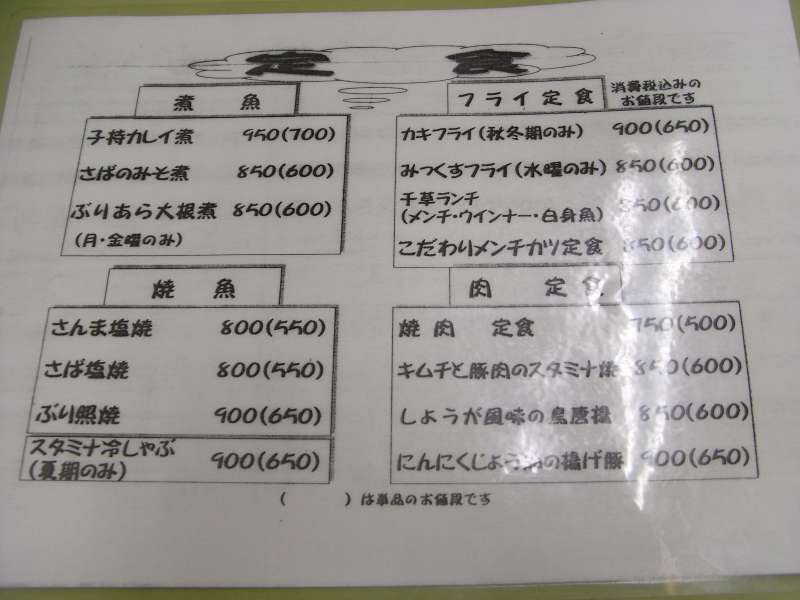 定食
煮魚
子持カレイ煮 950(700)
さばのみそ煮 850(600)
ぶりあら大根煮 850(600)
(月・金曜のみ)
焼魚
さんま塩焼 800(550)
さば塩焼 800(550)
ぶり照焼 900(650)
スタミナ冷しゃぶ
(夏期のみ) 900(650)
フライ定食
消費税込みの
お値段です
カキフライ(秋冬期のみ) 900(650)
みっくすフライ(水曜のみ) 850(600)
千草ランチ
(メンチ・ウインナー・白身魚) 850(600)
こだわりメンチカツ定食 850(600)
肉定食
焼肉 定食 750(500)
キムチと豚肉のスタミナ焼 850(600)
しょうが風味の鳥唐揚 850(600)
にんにくじょう油の揚げ豚 900(650)
( )は単品のお値段です